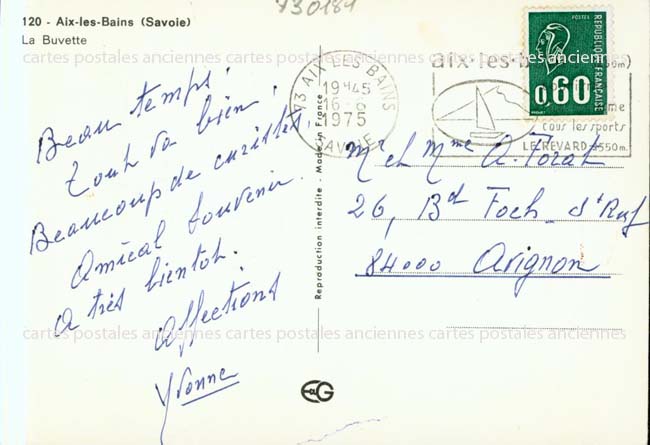 730184
120 - Aix-les-Bains (Savoie)
La Buvette
Beau temps!
Tout va bien!
Beaucoup de curistes,
Amical Souvenir.
A très bientot.
Affections
Yvonne
cartes postales anciennes cartes postales anciennes cartes postales anciennes
cartes postales anciennes cartes postales anciennes cartes postales anciennes
cartes postales anciennes cartes postales anciennes cartes postales anciennes
Reproduction interdite - Made in France
EG
73 AIX-LES-BAINS
19H45
1975
SAVOIE
aix-les-b
tous les sports
LE REVARD 1550m.
POSTES
REPUBLIQUE FRANÇAISE
0,60
Mr et Mme A. Forat
26, Bd Foch St Ruf
84000 Avignon